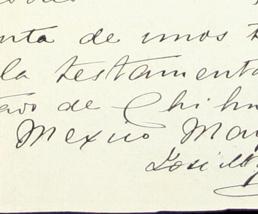 nta de unos t
la testamenta
tado de Chihu
Mexico May
José M